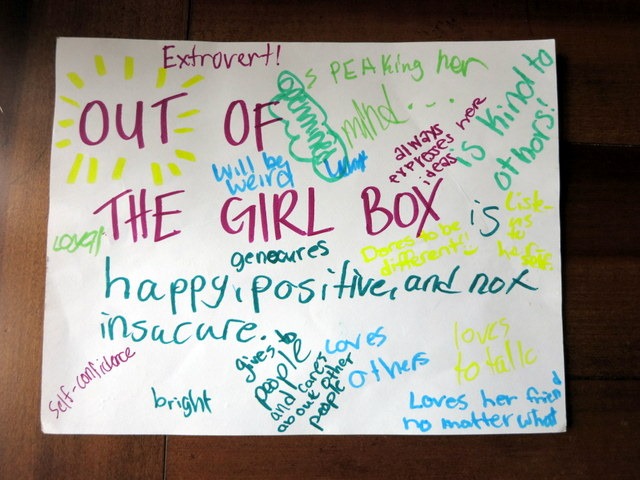 Extrovert!
SPEAking her
mind...
OUT OF
is kind to
others!
always
expresses her
ideas
will be
weird
THE GIRL BOX is
Listens
to
her-
self.
Loyal
geneoures
Dares to be
different!
happy, positive, and not
insucure.
gives to
people
and cares
about other
people
loves
others
loves
to talk
self-confidence
bright
Loves her friend
no matter what